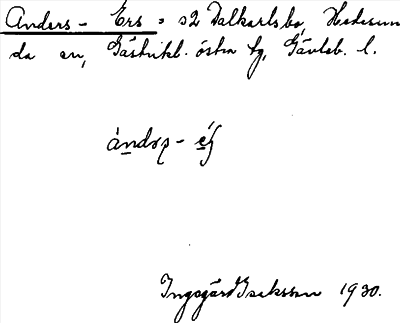 Anders - Ers = s2 Dalkarlsbo, Hedesun
da sn, Gästrikl. östra tg, Gävleb. l.
ándəʂ - éʂ
Ingegärd Isaksson 1930.